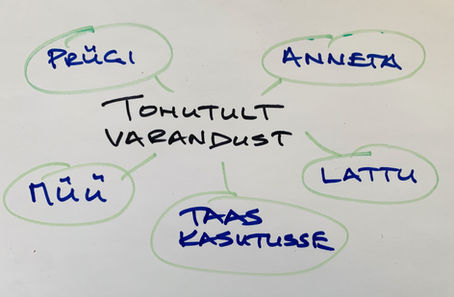 PRÜGI
ANNETA
TOHUTULT
VARANDUST
MÜÜ
LATTU
TAAS
KASUTUSSE